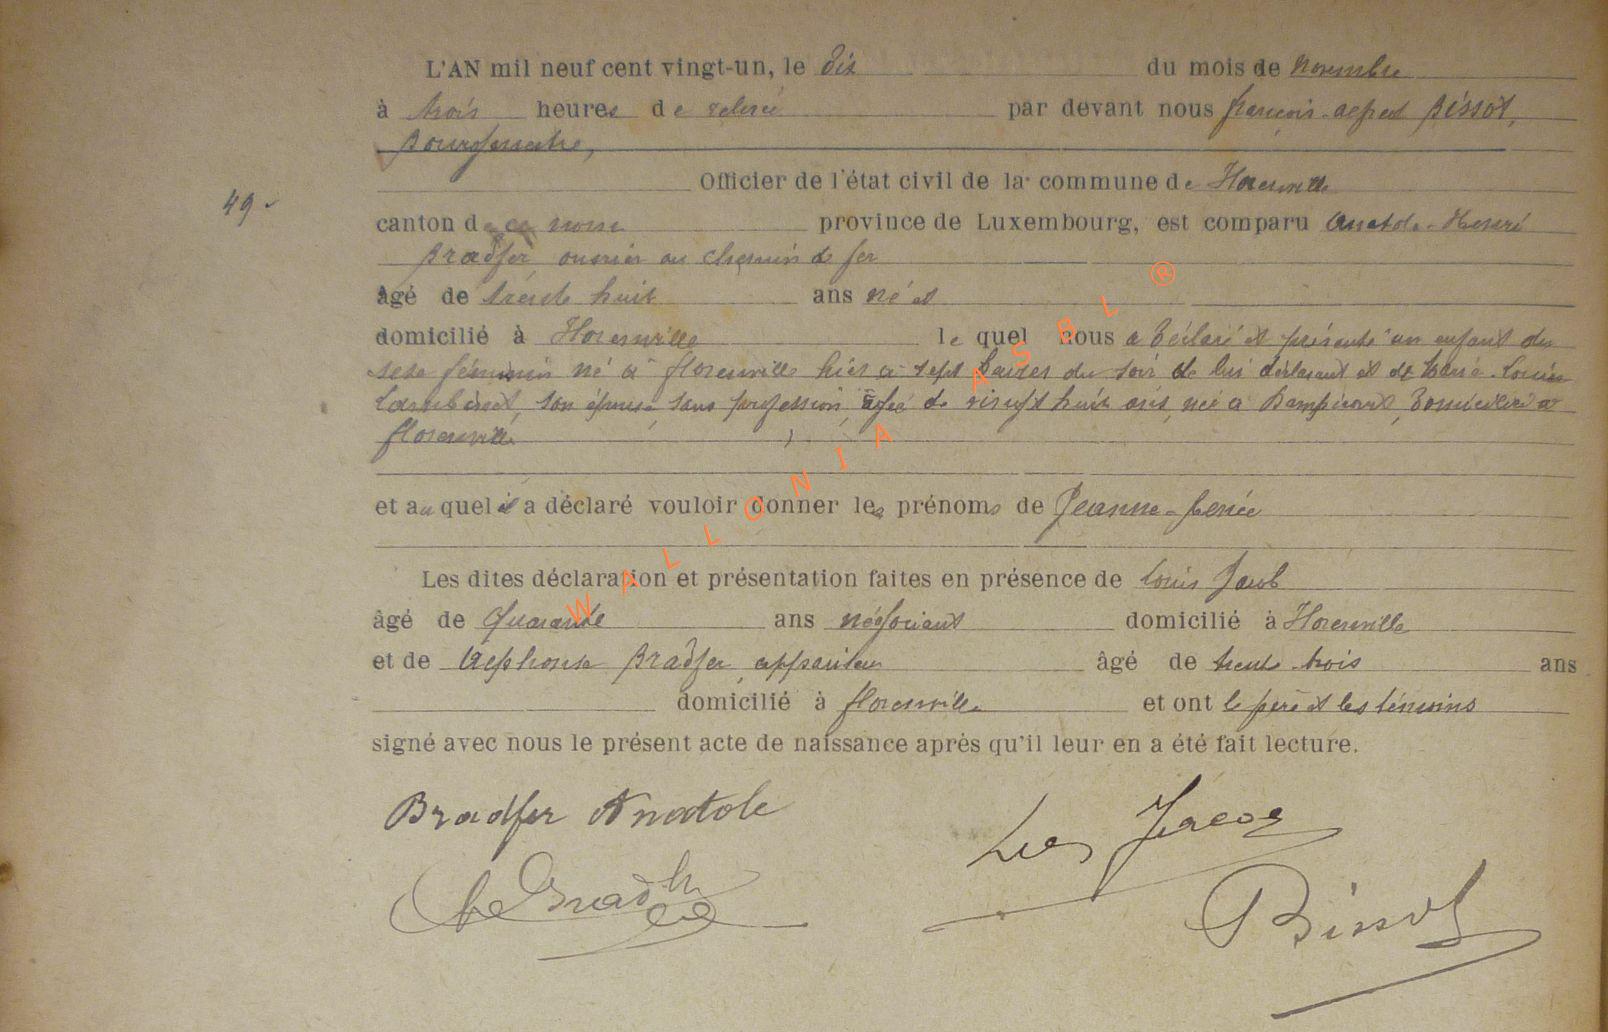 L'AN mil neuf cent vingt-un, le dix du mois de Novembre
à trois heures de relevée par devant nous françois-alfred Bissot,
Bourgmestre,
Officier de l'état civil de la commune de Florenville
49 -
canton de ce nom province de Luxembourg, est comparu Anatole-Henri
Bradfer ouvrier au chemin de fer
âgé de trente huit ans né et
domicilié à Florenville le quel nous a déclaré et présenté un enfant du
sexe féminin né à florenville hier à sept heures du soir de lui déclarant et de Marie-Louise
son épouse, sans profession, âgée de vingt huit ans, née à domiciliée à
florenville
et au quel il a déclaré vouloir donner les prénoms de Jeanne-Renée
Les dites déclaration et présentation faites en présence de Louis Jacob
âgé de Quarante ans négociant domicilié à Florenville
et de Alphonse Bradfer, appariteur âgé de trente trois ans
domicilié à florenville et ont le père et les témoins
signé avec nous le présent acte de naissance après qu'il leur en a été fait lecture.
Bradfer Anatole
Ls Jacob
Al Bradfer
Bissot
WALLONIA ASBL ®